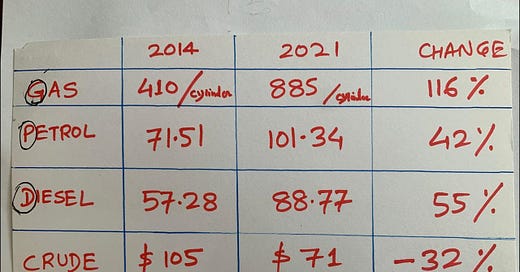 2014 2021 CHANGE
GAS 410/cylinder 885/cylinder 116%
PETROL 71.51 101.34 42%
DIESEL 57.28 88.77 55%
CRUDE $105 $71 -32%